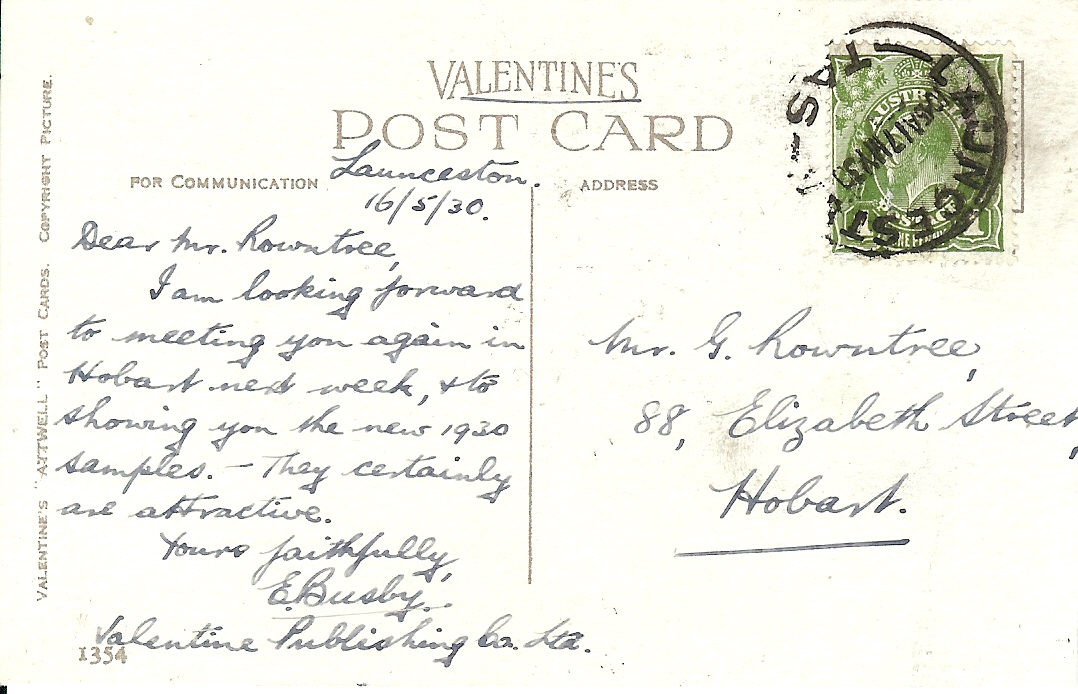 VALENTINE'S
POST CARD
FOR COMMUNICATION
ADDRESS
VALENTINE'S "ATTWELL" POST CARDS. COPYRIGHT PICTURE.
Launceston.
16/5/30.
Dear Mr. Rowntree,
I am looking forward
to meeting you again in
Hobart next week, & to
showing you the new 1930
samples. – They certainly
are attractive.
Yours faithfully,
E. Busby.
Valentine Publishing Co. Ltd.
1354
Mr. G. Rowntree,
88, Elizabeth Street,
Hobart.
LAUNCESTON
TAS
AUSTRALIA